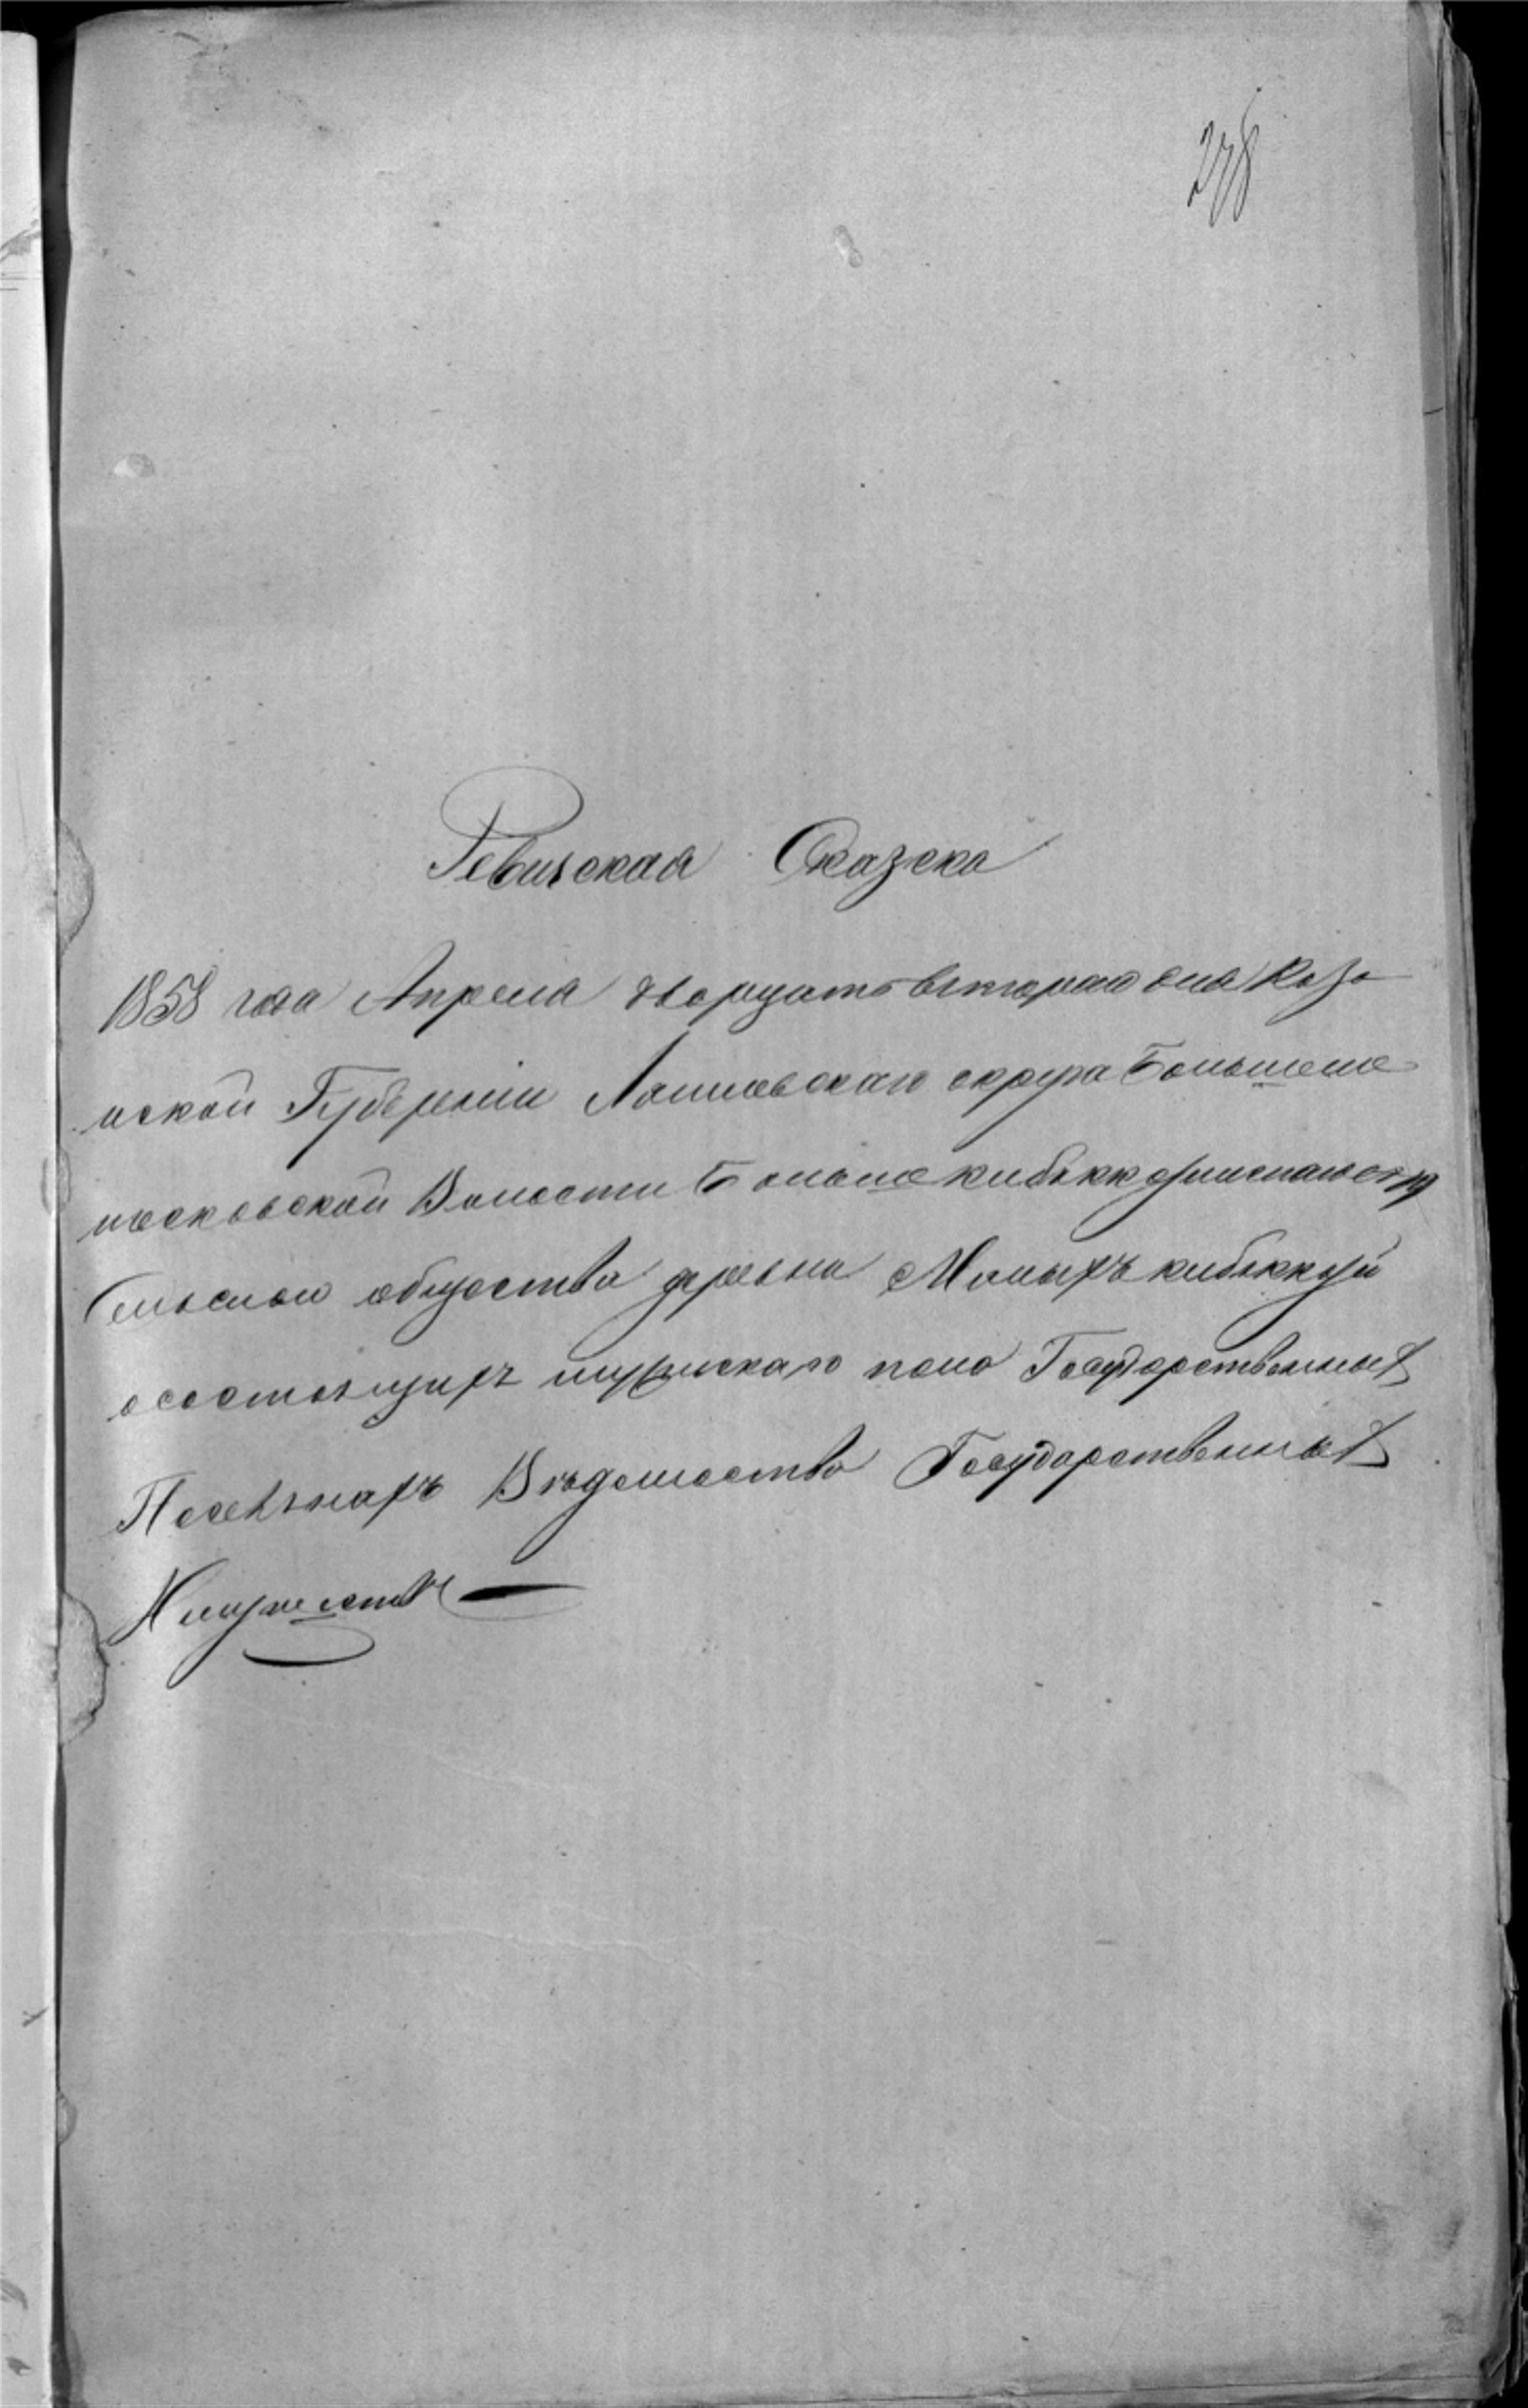 278
Ревизская Сказка
1858 года Апреля двадцать втораго дня Каза
нской Губернiи Лаишевскаго округа Большеме
тесковской Волости Большекибяккозинскаго
Сельскаго общества деревни Малыхъ кибяккози
о состоящихъ мужскаго пола Государственныхъ
Поселянахъ Ведомства Государственныхъ
Имуществъ